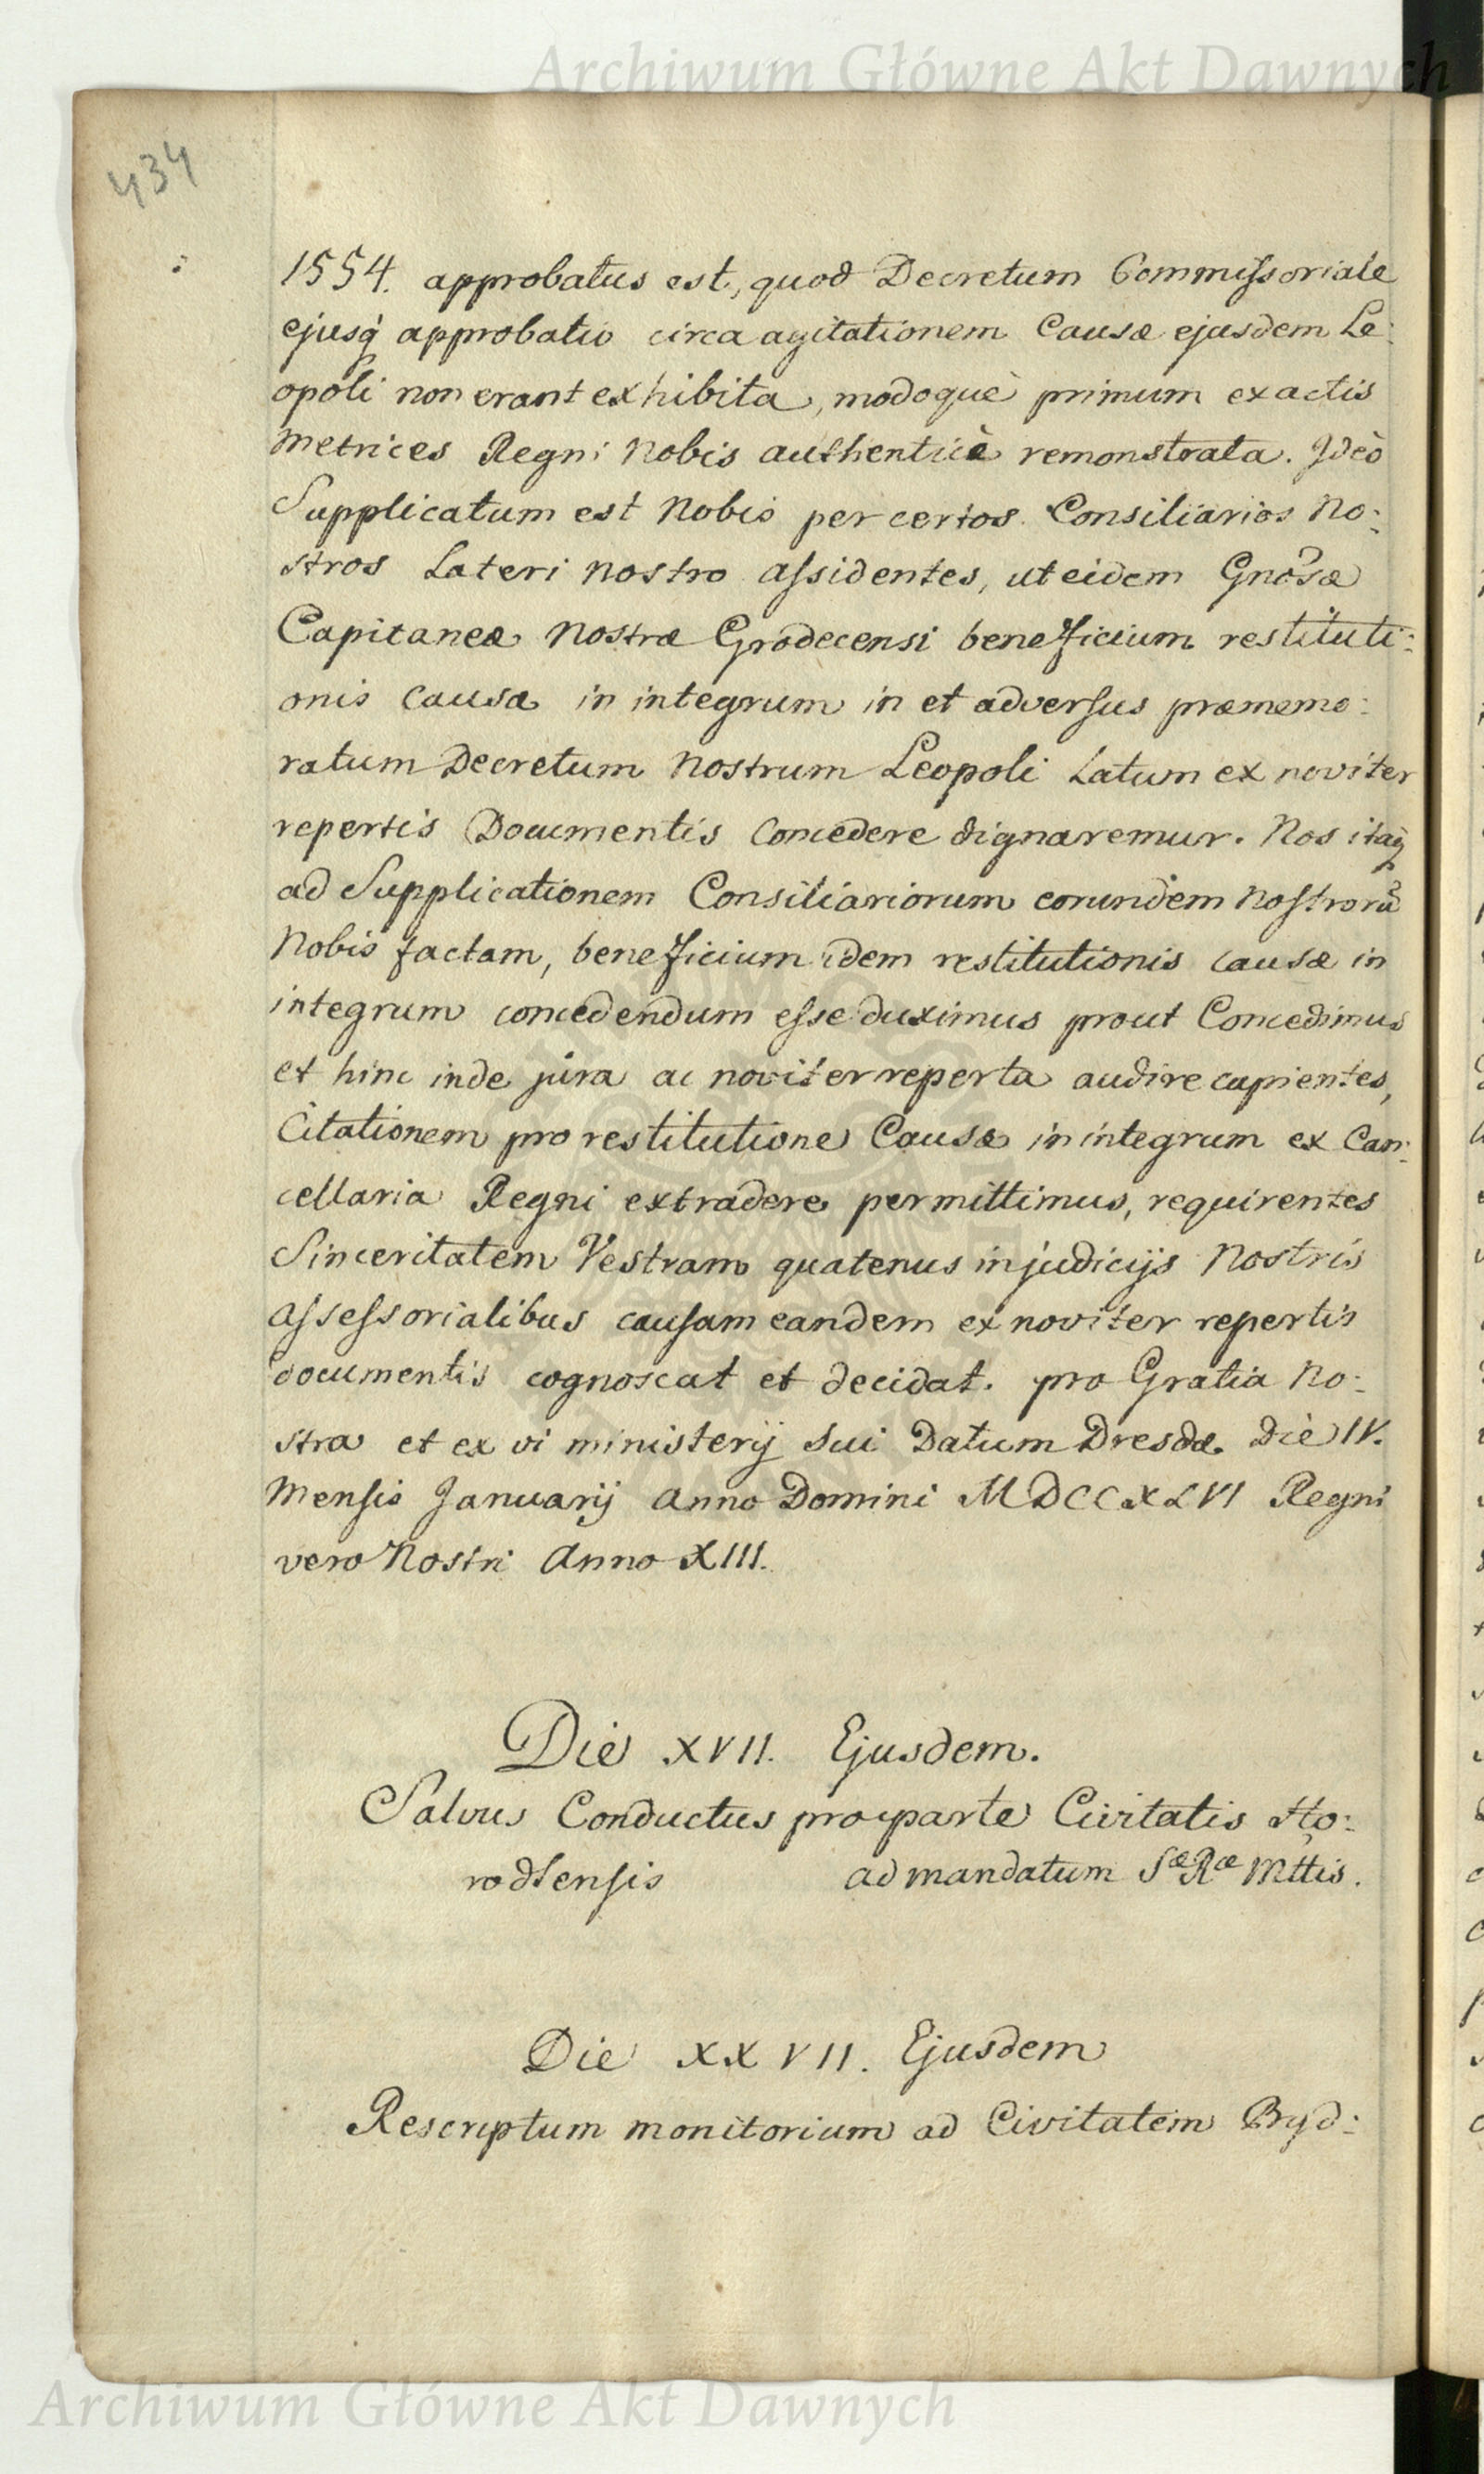 Archiwum Główne Akt Dawnych
434
1554. approbatus est, quod Decretum Commissoriale
ejusq̀ approbatio circa agitationem Causæ ejusdem Le:
opoli non erant exhibita, modoquè primum ex actis
Metrices Regni Nobis authenticè remonstrata. Ideò
Supplicatum est Nobis per certos Consiliarios No:
stros Lateri Nostro assidentes, ut eidem Gnosæ
Capitaneæ Nostræ Grodecensi beneficium restituti:
onis Causæ in integrum in et adversus præmemo:
ratum Decretum Nostrum Leopoli Latum ex noviter
repertis Documentis Concedere dignaremur. Nos itaq̀
ad Supplicationem Consiliariorum eorundem Nostrorũ
Nobis factam, beneficium idem restitutionis causæ in
integrum concedendum esse duximus prout Concedimus
et hinc inde jura ac noviter reperta audire cupientes,
Citationem pro restitutione Causæ in integrum ex Can:
cellaria Regni extradere permittimus, requirentes
Sinceritatem Vestram quatenus in judicijs Nostris
Assessorialibus causam eandem ex noviter repertis
documentis cognoscat et decidat. pro Gratia No:
stra et ex vi ministerij Sui Datum Dresdæ Diè IV.
Mensis Januarij Anno Domini MDCCXLVI Regni
vero Nostri Anno XIII.
Die XVII. Ejusdem.
Salvus Conductus pro parte Civitatis Ho:
rodlensis ad mandatum Sæ Ræ Mttis.
Die XXVII. Ejusdem
Rescriptum monitorium ad Civitatem Byd:
Archiwum Główne Akt Dawnych